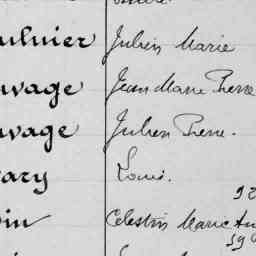 ulnier Julien Marie
uvage Jean Marie Pierre
uvage Julien Pierre.
vary Louis.
in Celestin Marie